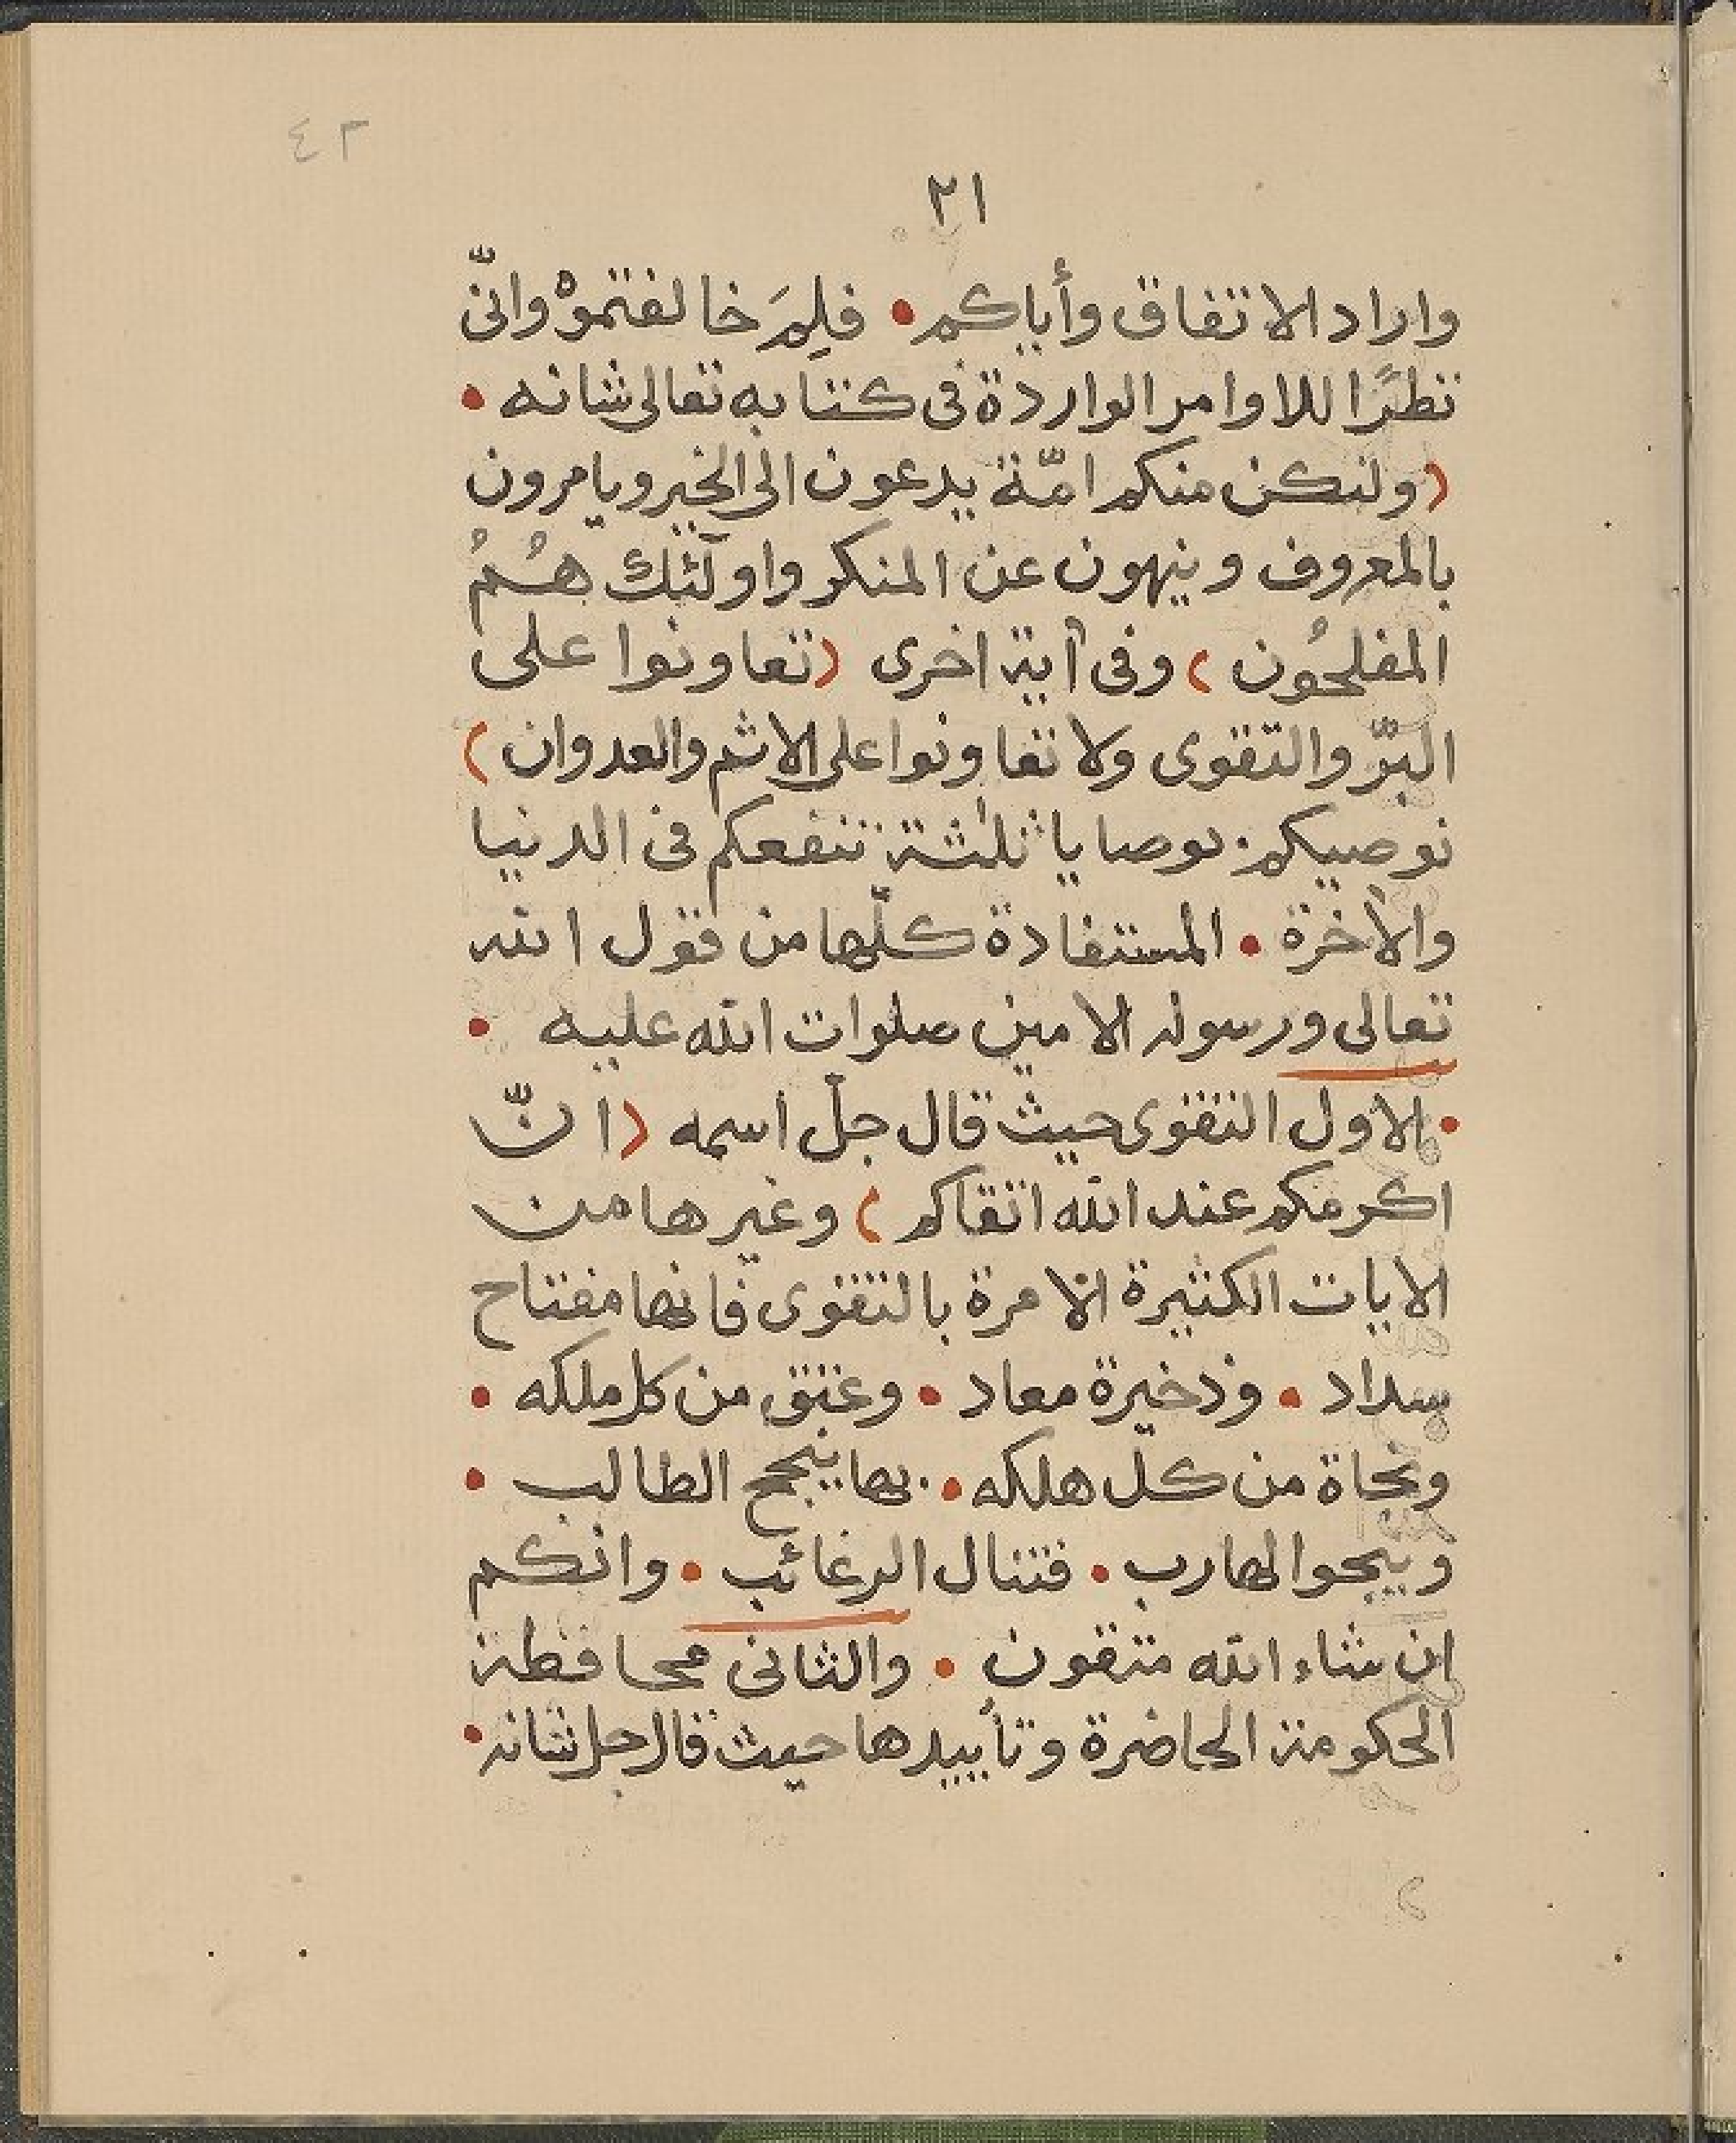 ٤٣
٢١
واراد الاتفاق وأياكم • فلِمَ خالفتموْ وانّى
نظرًا للاوامر الواردة فى كتابه تعالى شانه •
(ولتكن منكم امّة يدعون الى الخير ويامرون
بالمعروف وينهون عن المنكر واولٓئك هُمُ
المفلحُون) وفى آية اخرى (تعاونوا على
البرّ والتقوى ولا تعاونوا على الاثم والعدوان)
نوصيكم بوصايا ثلٰثة تنفعكم فى الدنيا
والأخرة • المستفادة كلّها من قول الله
تعالى ورسوله الامين صلوات الله عليه •
• الاول التقوى حيث قال جلّ اسمه (انّ
اكرمكم عند الله اتقاكم) وغيرها من
الايات الكثيرة الآمرة بالتقوى فانها مفتاح
سداد • وذخيرة معاد • وعتق من كل ملكه •
ونجاة من كلّ هلكه • بها ينجح الطالب •
وينجوا الهارب • فتنال الرغائب • وانكم
ان شاء الله متقون • والثانى محافظة
الحكومة الحاضرة وتأييدها حيث قال جل شانه •